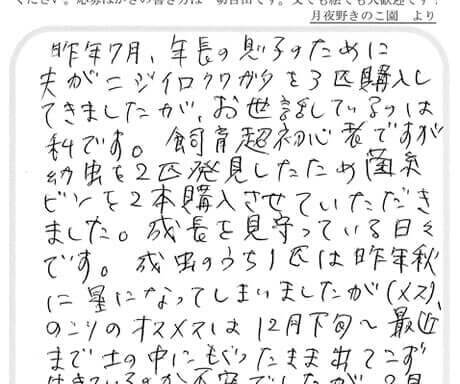 ください。応募はがきの書き方は一切自由です。文でも絵でも大歓迎です！
月夜野きのこ園　より
昨年7月、年長の息子のために
夫がニジイロクワガタを3匹購入し
てきましたが、お世話しているのは
私です。飼育超初心者ですが
幼虫を2匹発見したため菌糸
ビンを2本購入させていただき
ました。成長を見守っている日々
です。成虫のうち1匹は昨年秋
に星になってしまいましたが(メス)、
のこりのオスメスは12月下旬～最近
まで土の中にもぐったまま出てこず